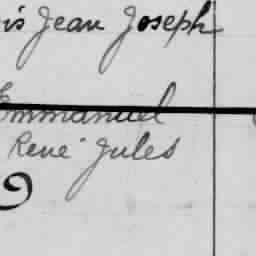 is Jean Joseph
Emmanuel
René Jules
9